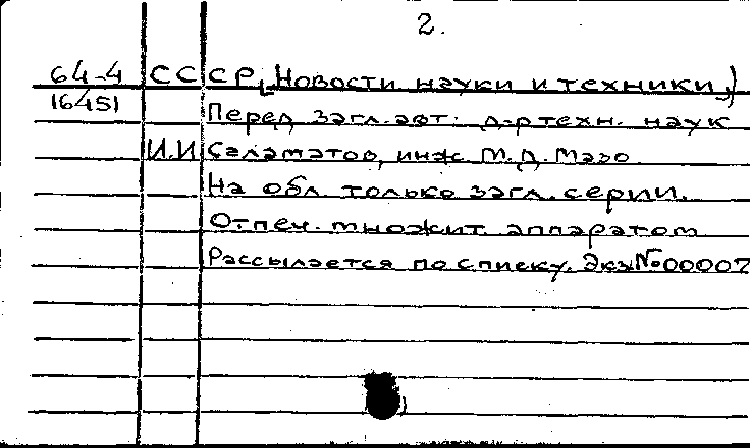 2.
64-4 СССР, [Новости науки и техники])
16451 Перед загл. авт.: д-р техн. наук
И.И Саламатов, инж. М.Д. Мазо.
На обл. только загл. серии.
Отпеч. множит. аппаратом
Рассылается по списку. Экз №00007